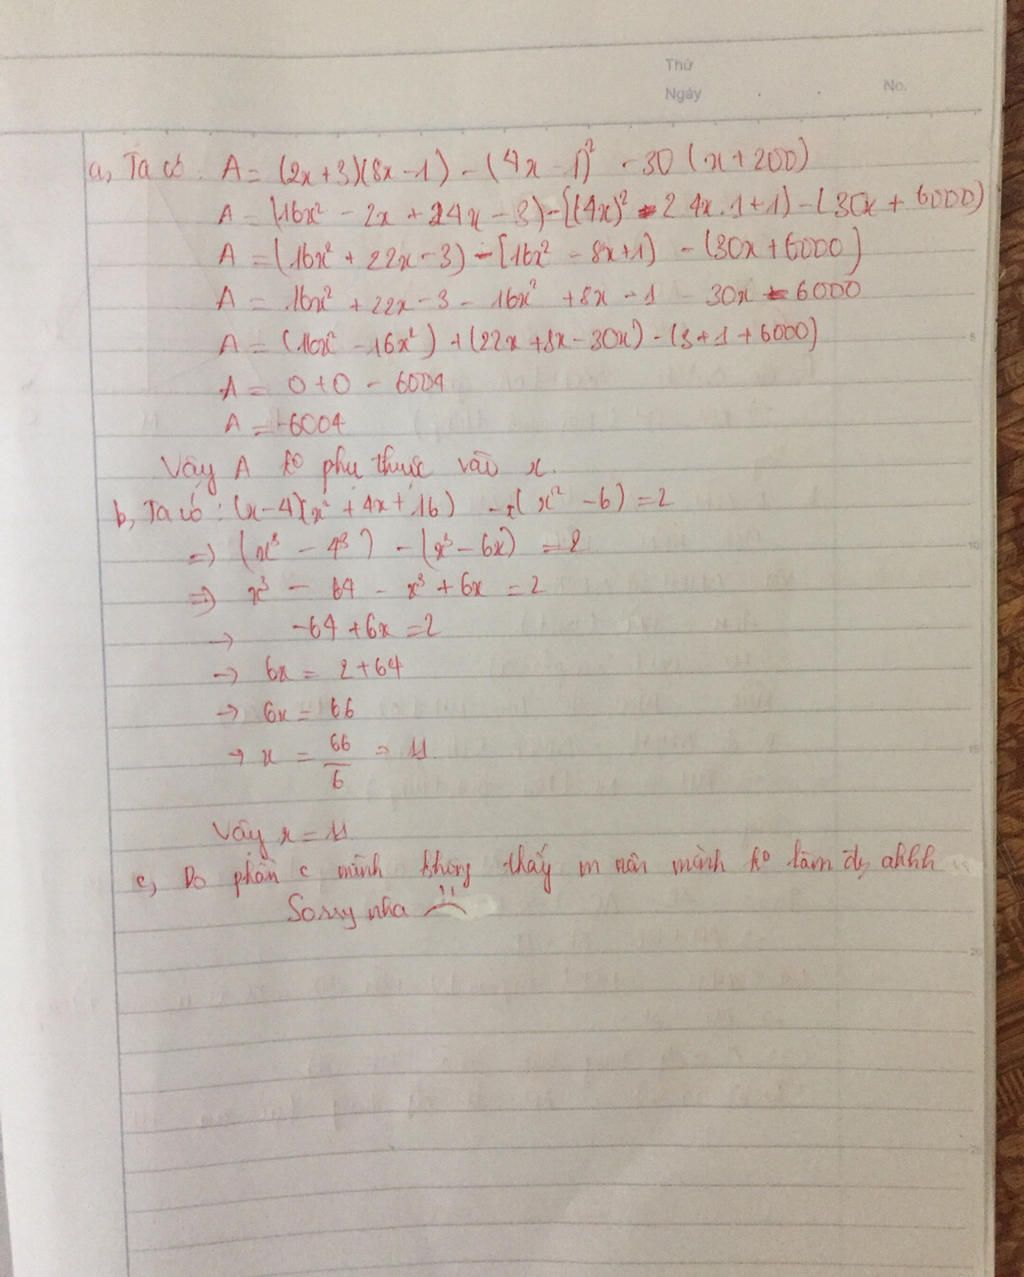 Thứ
Ngày . .
No.
a, Ta có. A = (2x+3)(8x-1) - (4x-1)² - 30 (x+200)
A = (16x² - 2x + 24x - 3) - [(4x)² - 2 4x.1+1) - (30x + 6000)
A = (16x² + 22x - 3) - [16x² - 8x+1) - (30x + 6000)
A = 16x² + 22x - 3 - 16x² + 8x - 1 - 30x - 6000
A = (16x² - 16x²) + (22x + 8x - 30x) - (3+1+6000)
A = 0+0 - 6004
A = -6004
Vậy A ko phụ thuộc vào x.
b, Ta có: (x-4)(x² + 4x + 16) - x(x² - 6) = 2
=> (x³ - 4³) - (x³ - 6x) = 2
=> x³ - 64 - x³ + 6x = 2
→ -64 + 6x = 2
→ 6x = 2+64
→ 6x = 66
→ x = 66/6 = 11.
Vậy x = 11
c, Do phần c mình không thấy m nên mình ko làm đc ahhh
Sorry nha
5
10
15
20
25